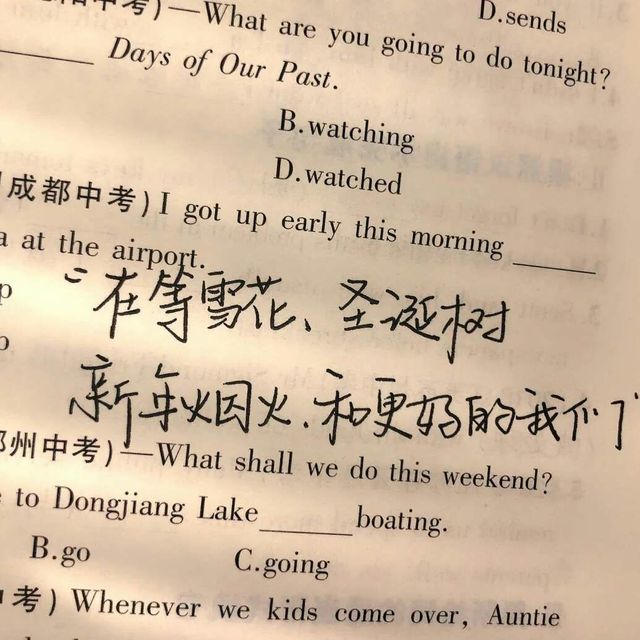 中考)—What are you going to do tonight?
D.sends
Days of Our Past.
B.watching
D.watched
成都中考)I got up early this morning ______
a at the airport.
“在等雪花、圣诞树
新年烟火.和更好的我们”
州中考)—What shall we do this weekend?
to Dongjiang Lake______boating.
B.go C.going
考) Whenever we kids come over, Auntie